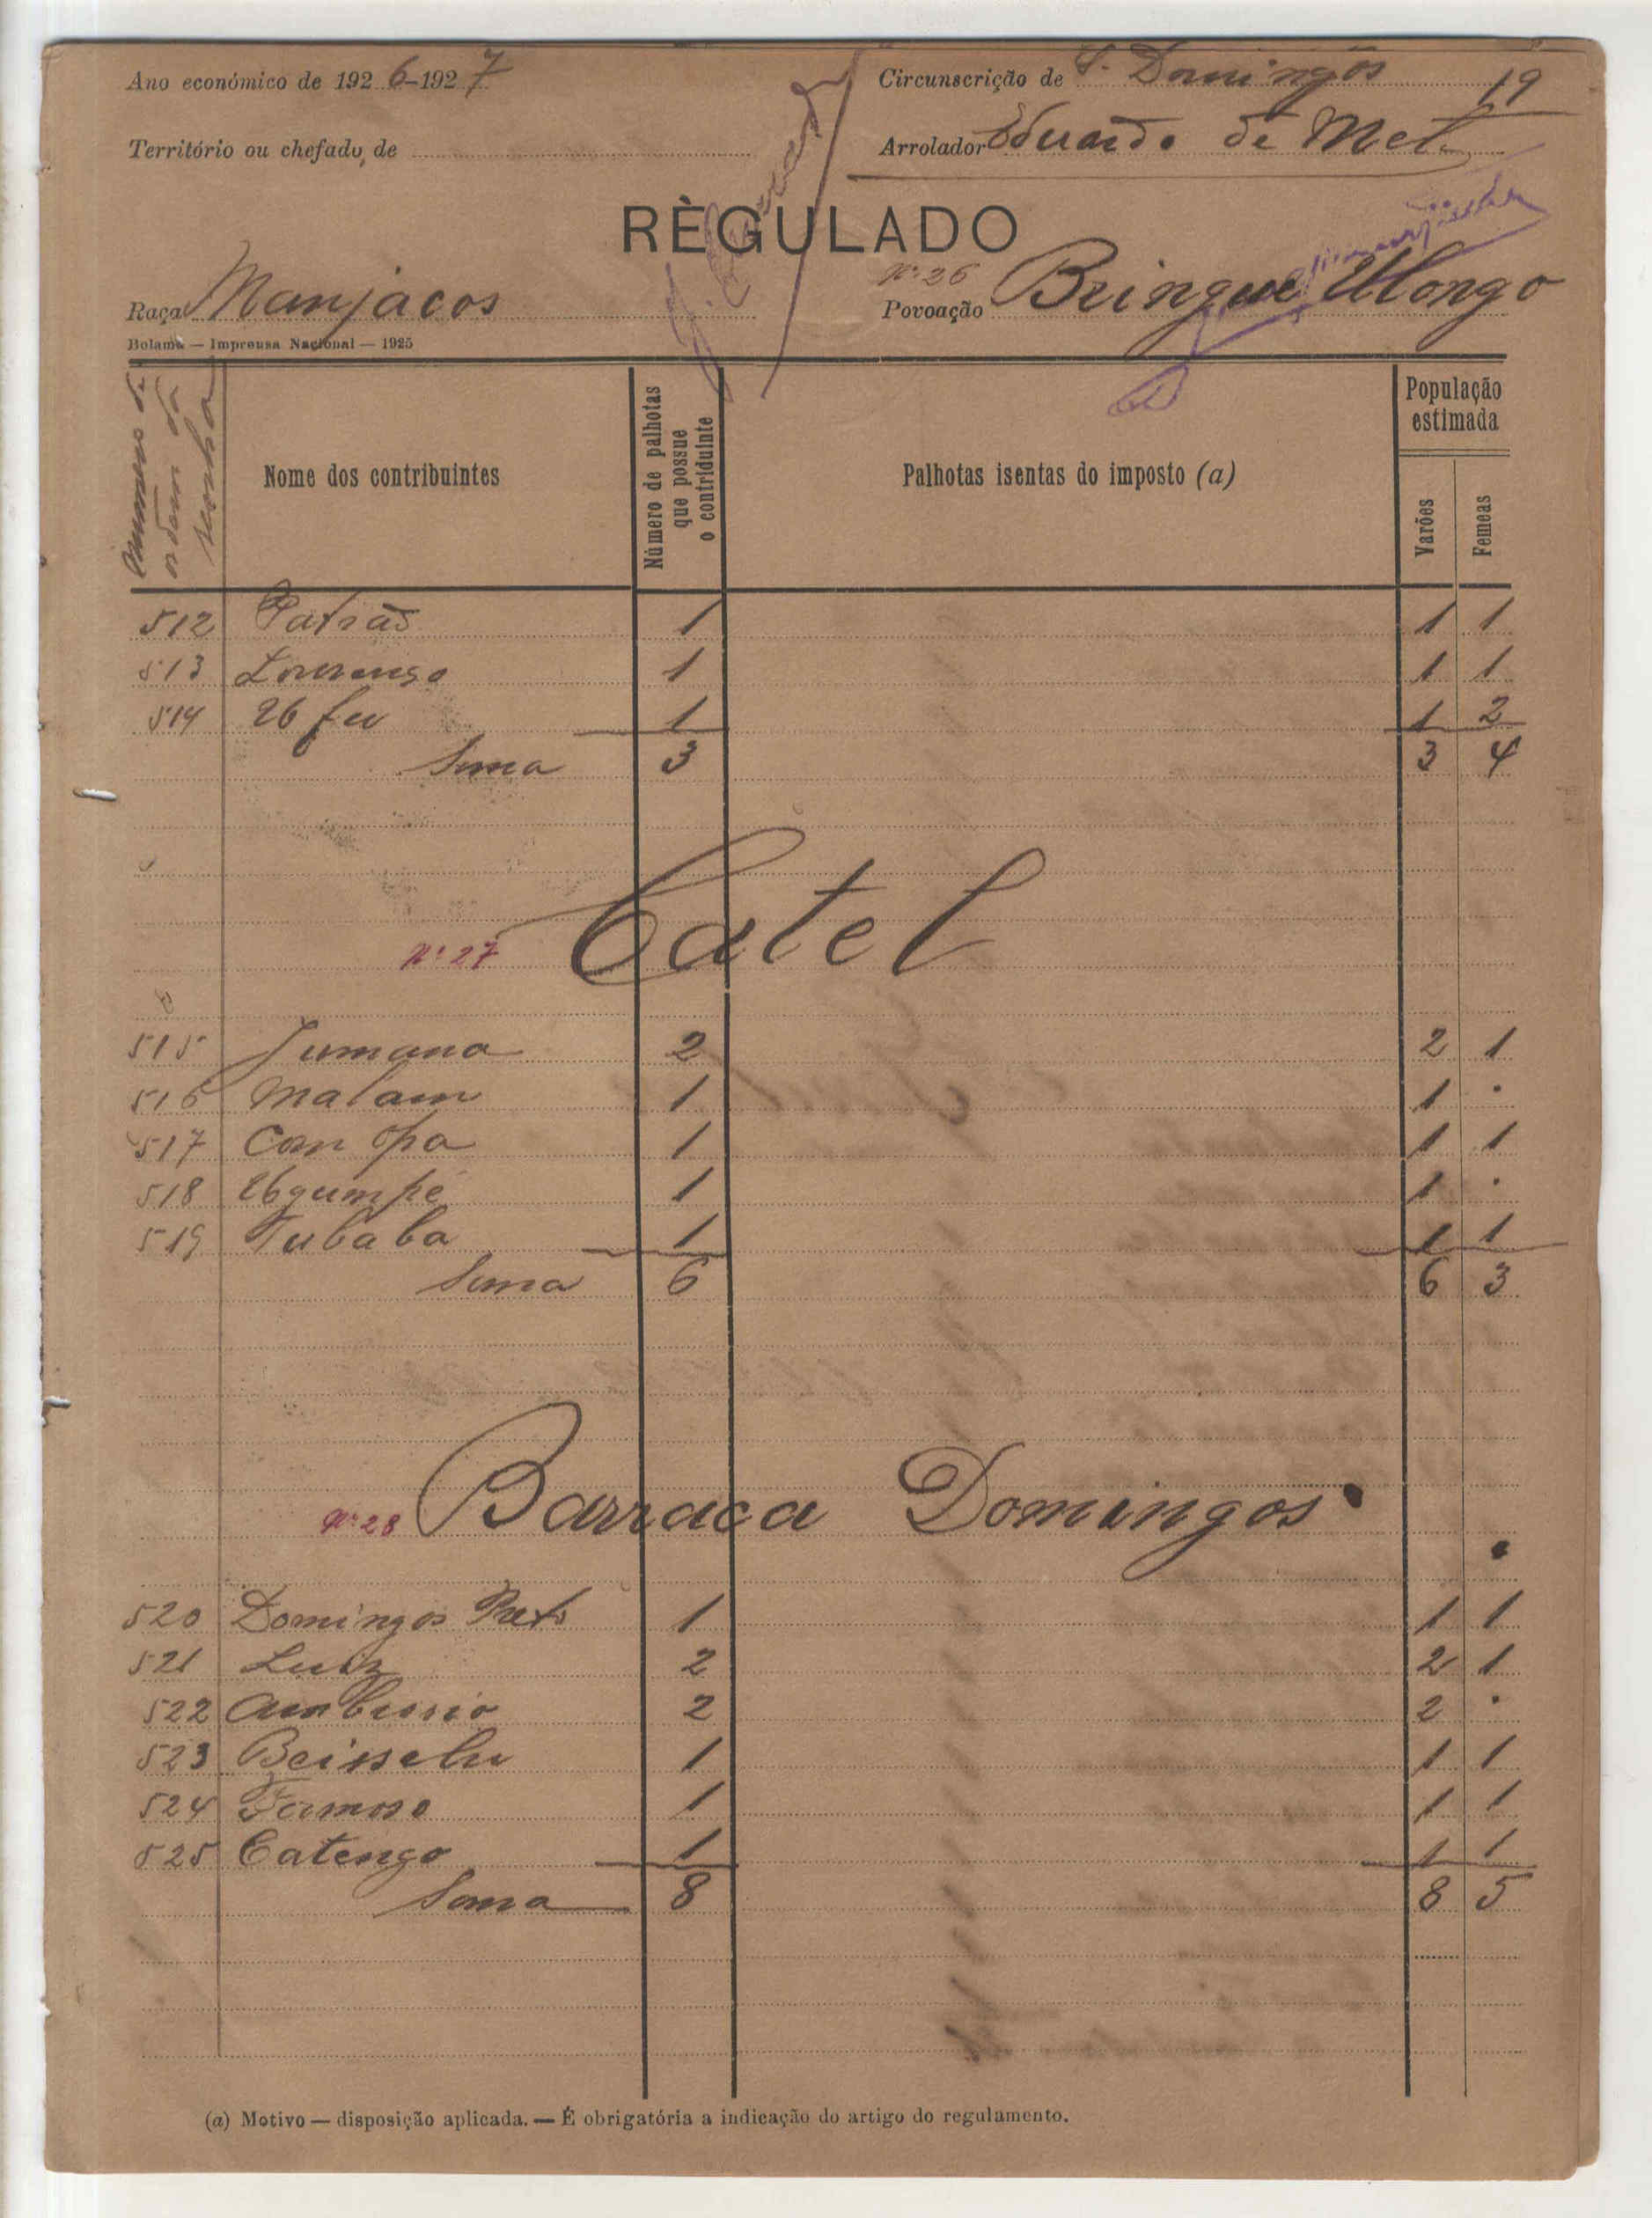 Ano económico de 1926-1927
Circunscrição de S. Domingos
19
Território ou chefado de
Arrolador Eduardo de
RÈGULADO
Raça Manjacos
Nº 26
Povoação Bringue Utongo
Bolama — Imprensa Nacional — 1925
Nome dos contribuintes
Número de palhotas que possue o contriduinte
Palhotas isentas do imposto (a)
População estimada
Varões
Femeas
512 Patrão 1 1 1
513 Lourenço 1 1 1
514 1 1 2
Soma 3 3 4
Nº 27 Catel
515 Jumana 2 2 1
516 Malam 1 1 .
517 Can Opa 1 1 1
518 1 1 .
519 Tubaba 1 1 1
Soma 6 6 3
Nº 28 Barraca Domingos
520 Domingos Preto 1 1 1
521 Luiz 2 2 1
522 2 2 .
523 1 1 1
524 Formoso 1 1 1
525 Catengo 1 1 1
Soma 8 8 5
(a) Motivo — disposição aplicada. — É obrigatória a indicação do artigo do regulamento.